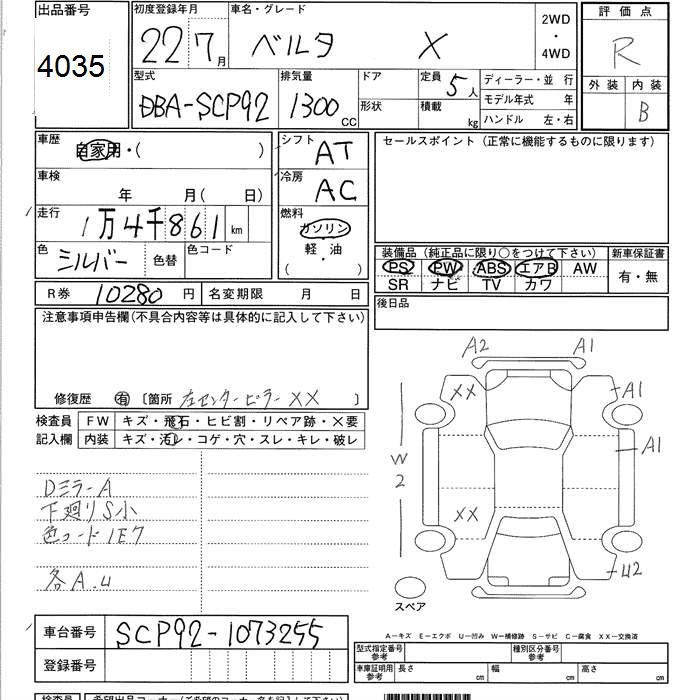 出品番号 初度登録年月 車名・グレード 2WD・4WD 評価点
4035 22 7月 ベルタ X R
型式 排気量 ドア 定員 5人 ディーラー・並 行 外装 内装
DBA-SCP92 1300CC 形状 積載 kg モデル年式 年 B
ハンドル 左・右
車歴 自家用・( ) シフト AT セールスポイント (正常に機能するものに限ります)
車検 年 月( 日) 冷房 AC
走行 1万4千861km 燃料 ガソリン
色 シルバー 色替 色コード 軽・油 装備品 (純正品に限り○をつけて下さい) 新車保証書
( ) PS PW ABS エアB AW 有・無
SR ナビ TV カワ
R券 10280円 名変期限 月 日 後日品
注意事項申告欄(不具合内容等は具体的に記入して下さい)
修復歴 有 〔箇所 左センターピラーXX 〕
検査員 FW キズ・飛石・ヒビ割・リペア跡・X要
記入欄 内装 キズ・汚レ・コゲ・穴・スレ・キレ・破レ
DミラーA
下廻りS小
色コード1E7
各A.U
A2 A1
XX A1
A1
W2
XX
U2
スペア
車台番号 SCP92-1073255
登録番号
A-キズ E-エクボ U-凹み W-補修跡 S-サビ C-腐食 XX-交換済
型式指定番号 参考 種別区分番号 参考
車庫証明用 参考 長さ cm 幅 cm 高さ cm
検査員 希望出品コーナー(ご希望のコーナー名を記入して下さい)